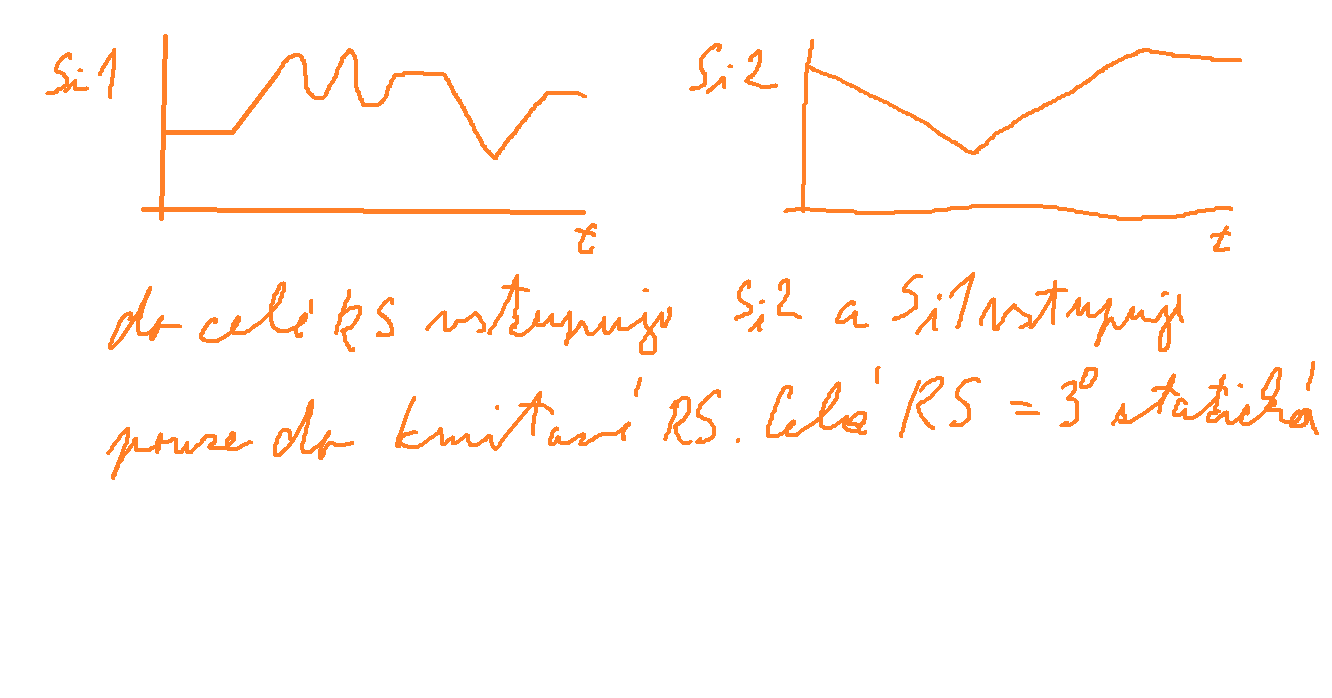 Si1
Si2
t
t
do celé RS vstupuje Si2 a Si1 vstupuje
pouze do kmitavé RS. Celá RS = 3° statická